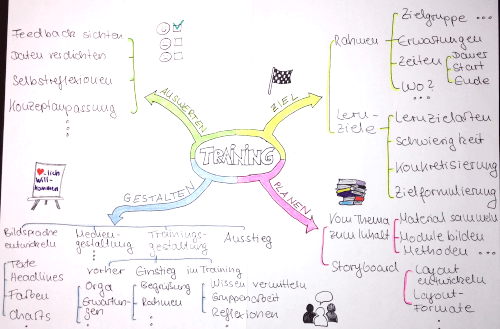 TRAINING
AUSWERTEN
Feedback sichten
Daten verdichten
Selbstreflexionen
Konzeptanpassung
ZIEL
Rahmen
Zielgruppe ...
Erwartungen
Zeiten
Dauer
Start
Ende
Wo?
...
Lern-
ziele
Lernzielarten
Schwierigkeit
Konkretisierung
Zielformulierung
PLANEN
Vom Thema
zum Inhalt
Material sammeln
Module bilden
Methoden ...
Storyboard
Layout
entwickeln
Layout-
Formate
GESTALTEN
Herzlich
will-
kommen
Bildsprache
entwickeln
Texte
Headlines
Farben
Charts
Medien-
gestaltung
Trainings-
gestaltung
Ausstieg
vorher
Orga
Erwartun-
gen
Einstieg
Begrüßung
Rahmen
im Training
Wissen vermitteln
Gruppenarbeit
Reflexionen